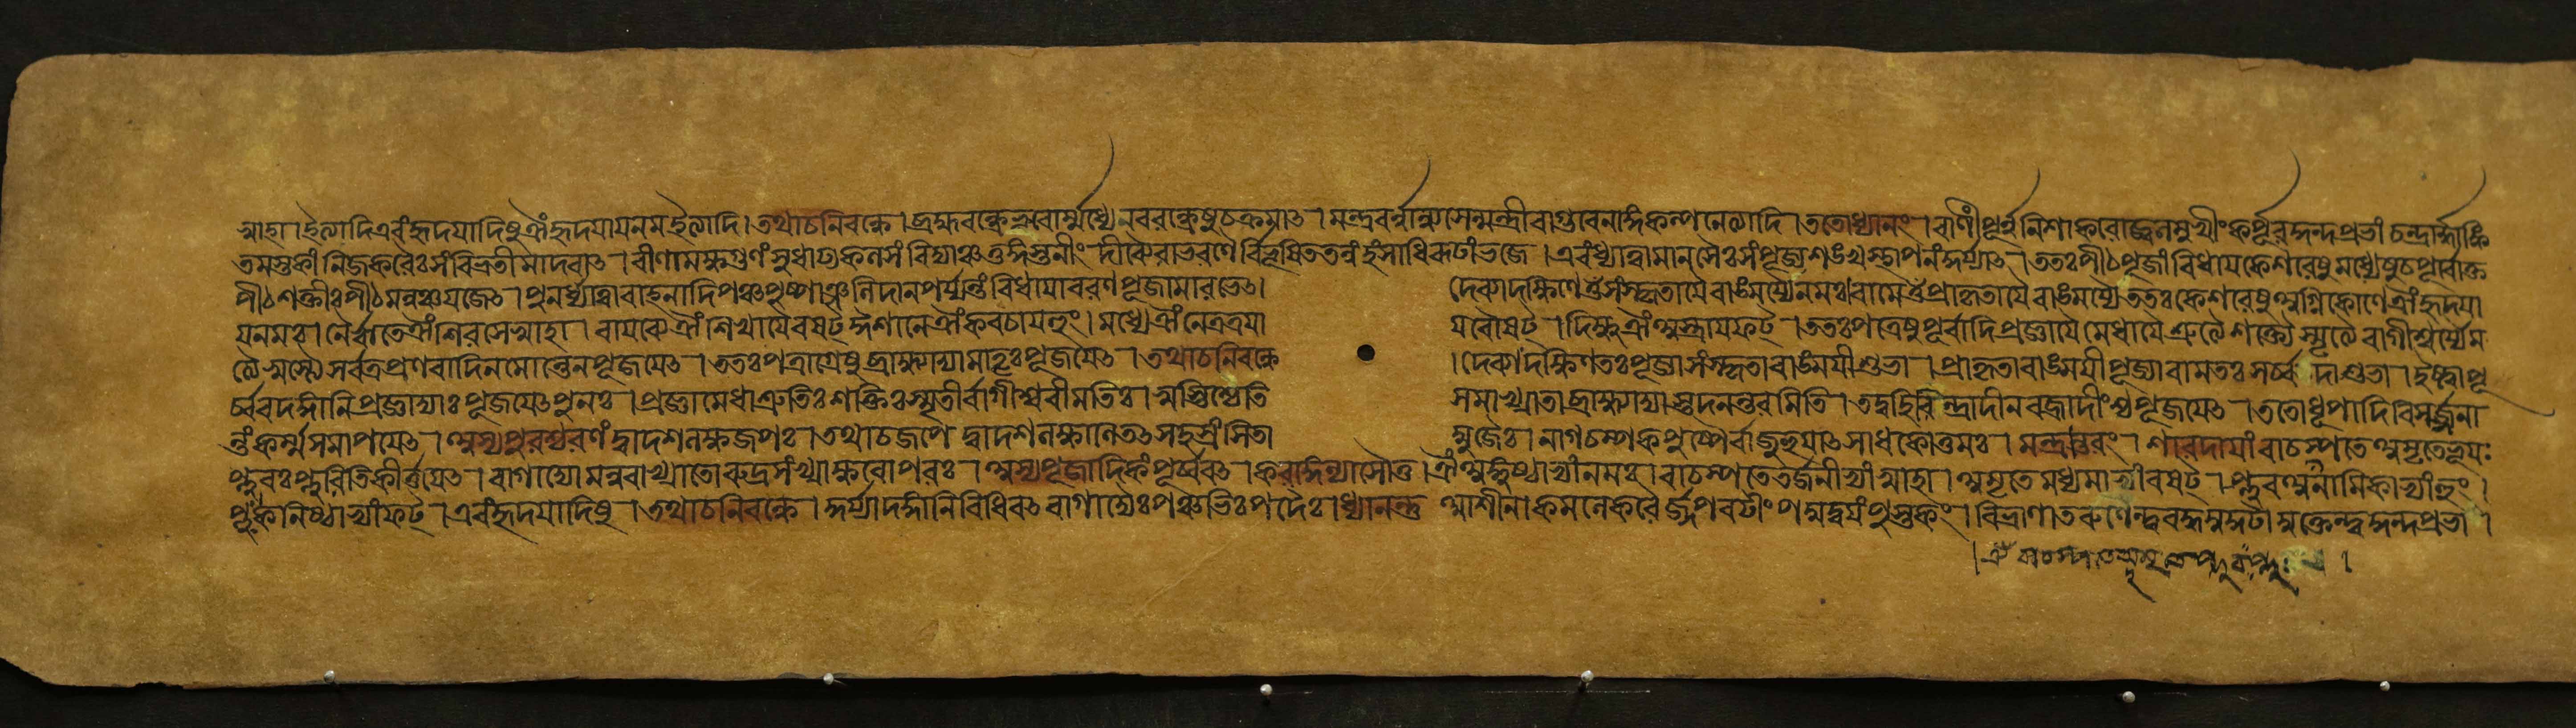 স্বাহা । ইত্যাদি এবং হৃদয়াদিষু ঐং হৃদয়ায় নম ইত্যাদি । তথাচ নিবন্ধে । ব্রহ্মরন্ধ্রে ভ্রুবোর্ম্মধ্যে নবরন্ধ্রেষু চ ক্রমাৎ । মন্ত্রবর্ন্নান্ন্যসেন্মন্ত্রী বাগ্ভবেনাঙ্গকল্পনেত্যাদি । ততো ধ্যানং । বাণীং পূর্ন্ননিশাকরোজ্জ্বলমুখীং কর্পূরকুন্দপ্রভাং চন্দ্রার্দ্ধাঙ্কি
তমস্তকাং নিজকরৈঃ সংবিভ্রতীমাদরাৎ । বীণামক্ষগুণং সুধাঢ্যকলসং বিদ্যাঞ্চ তুঙ্গস্তনীং দিব্যৈরাভরণৈর্বিভূষিততনুং হংসাধিরূঢাং ভজে । এবং ধ্যাত্বা মানসৈঃ সংপূজ্য শঙ্খস্থাপনং কুর্য্যাৎ । ততঃ পীঠপূজাং বিধায় কেশরেষু মধ্যেষু চ পূর্বোক্ত
পীঠশক্তীঃ পীঠমনুঞ্চ যজেৎ । পুনর্ধ্যাত্বাবাহনাদিপঞ্চপুষ্পাঞ্জলিদানপর্য্যন্তং বিধায়াবরণপূজামারভেৎ । দেব্যা দক্ষিণে ওঁ সংস্কৃতায়ৈ বাঙ্ময়্যৈ নমঃ । বামে ওঁ প্রাকৃতায়ৈ বাঙ্ময়্যৈ ততঃ কেশরেষু অগ্নিকোণে ঐং হৃদয়া
য় নমঃ । নৈর্ঋতে ঐং শিরসে স্বাহা । বায়ব্যে ঐং শিখায়ৈ বষট্ ঈশানে ঐং কবচায় হুং । মধ্যে ঐং নেত্রত্রয়া য় বৌষট্ । দিক্ষু ঐং অস্ত্রায় ফট্ । ততঃ পত্রেষু পূর্বাদি প্রজ্ঞায়ৈ মেধায়ৈ শ্রুত্যৈ শক্ত্যৈ স্মৃত্যৈ বাগীশ্বর্য্যৈ ম
ত্যৈ স্বস্ত্যৈ সর্বত্র প্রণবাদিনমোন্তেন পূজয়েৎ । ততঃ পত্রাগ্রেষু ব্রাহ্ম্যাদ্যা মাতৃঃ পূজয়েৎ । তথাচ নিবন্ধে । দেব্যা দক্ষিণতঃ পূজ্যা সংস্কৃতা বাঙ্ময়ী শুভা । প্রাকৃতা বাঙ্ময়ী পূজ্যা বামতঃ সর্ব্বদা শুভা । ইষ্ট্বা পূ
র্ব্ববদঙ্গানি প্রজ্ঞাদ্যাঃ পূজয়েৎ পুনঃ । প্রজ্ঞা মেধা শ্রুতিঃ শক্তিঃ স্মৃতীর্বাগীশ্বরী মতিঃ । স্বস্তিশ্চেতি সমাখ্যাতা ব্রাহ্ম্যাদ্যাস্তদনন্তরমিতি । তদ্বহিরিন্দ্রাদীন বজ্রাদীংশ্চ পূজয়েৎ । ততো ধূপাদিবিসর্জ্জনা
ন্তং কর্ম্ম সমাপয়েৎ । অস্য পুরশ্চরণং দ্বাদশলক্ষজপঃ । তথাচ জপে দ্বাদশলক্ষাণি তৎসহস্রং সিতা ম্বুজৈঃ । নাগচম্পকপুষ্পৈর্বা জুহুয়াৎ সাধকোত্তমঃ । মন্ত্রান্তরং । শারদায়াং বাচস্পতে অমৃতে ভূয়ঃ
প্লুবঃ প্লুরিতি কীর্ত্তয়েৎ । বাগাদ্যো মনুরাখ্যাতো রুদ্রসংখ্যাক্ষরোপরঃ । অস্য পূজাদিকং পূর্ব্ববৎ । করাঙ্গন্যাসৌ তু । ঐং অঙ্গুষ্ঠাভ্যাং নমঃ । বাচস্পতে তর্জনীভ্যাং স্বাহা । অমৃতে মধ্যমাভ্যাং বষট্ । প্লুবঃ অনামিকাভ্যাং হুং ।
প্লুঃ কনিষ্ঠাভ্যাং ফট্ । এবং হৃদয়াদিষু । তথাচ নিবন্ধে । কুর্য্যাদঙ্গানি বিধিবৎ বাগাদ্যৈঃ পঞ্চভিঃ পদৈঃ । ধ্যানন্তু আসীনা কমলে করৈর্জ্জপবটীং পদ্মদ্বয়ং পুস্তকং । বিভ্রাণা তরুণেন্দুবদ্ধমুকুটা মুক্তেন্দুকুন্দপ্রভা ।
। ঐঁ বাচস্পতে অমৃতে প্লুবঃ প্লুঃ ।